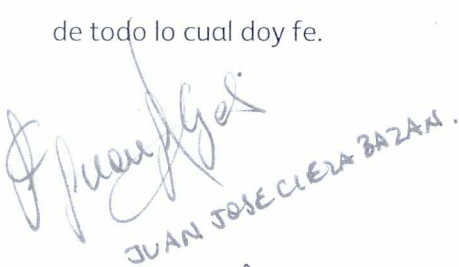 de todo lo cual doy fe.
JUAN JOSE CIEZA BAZAN.